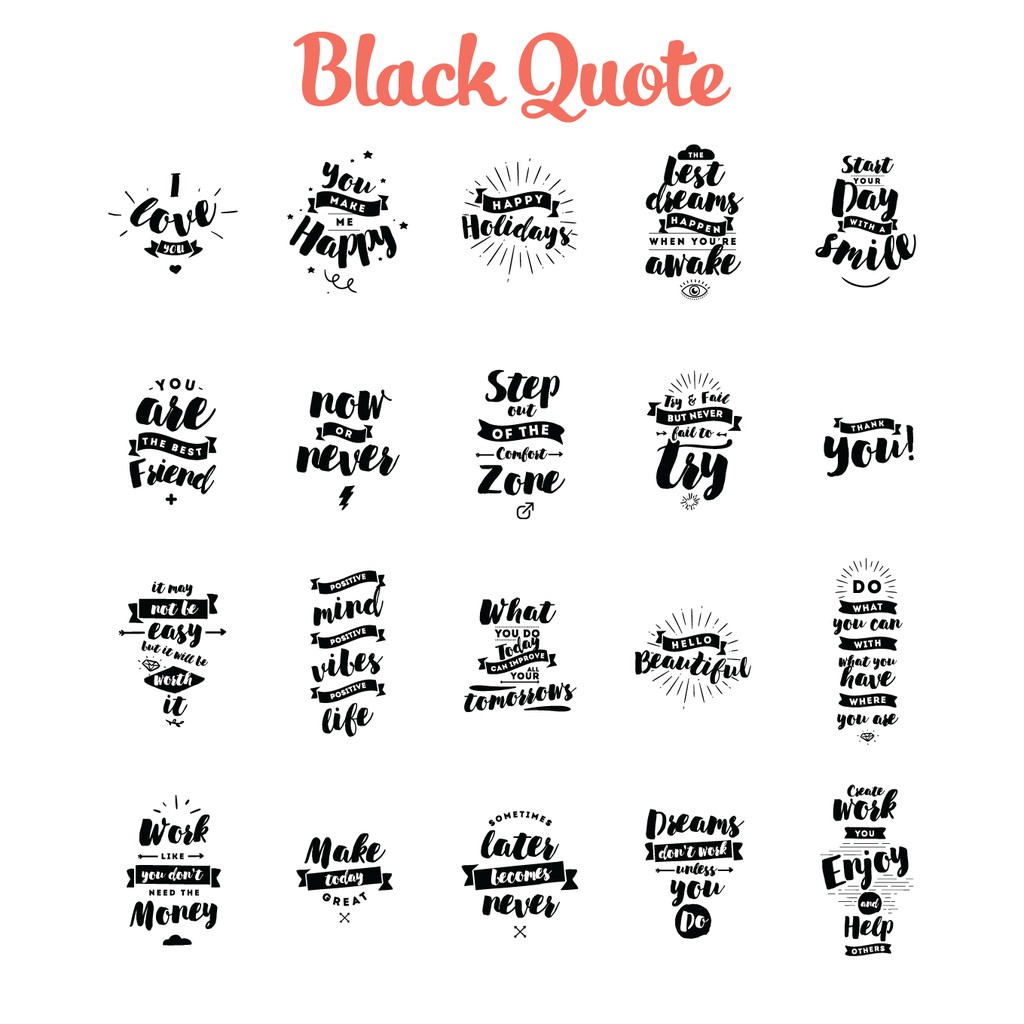 Black Quote
I
love
you
You
MAKE
ME
Happy
HAPPY
Holidays
THE
best
dreams
HAPPEN
WHEN YOU'RE
awake
Start
YOUR
Day
WITH A
smile
YOU
are
THE BEST
Friend
now
OR
never
Step
out
OF THE
Comfort
Zone
Try & Fail
BUT NEVER
fail to
try
THANK
you!
it may
not be
easy
but it will be
worth
it
POSITIVE
mind
POSITIVE
vibes
POSITIVE
life
What
YOU DO
Today
CAN IMPROVE
ALL
YOUR
tomorrows
HELLO
Beautiful
DO
WHAT
you can
WITH
what you
have
WHERE
you are
Work
LIKE
you don't
NEED THE
Money
Make
today
GREAT
SOMETIMES
later
becomes
never
Dreams
don't work
unless
you
Do
Create
Work
YOU
Enjoy
and
Help
OTHERS